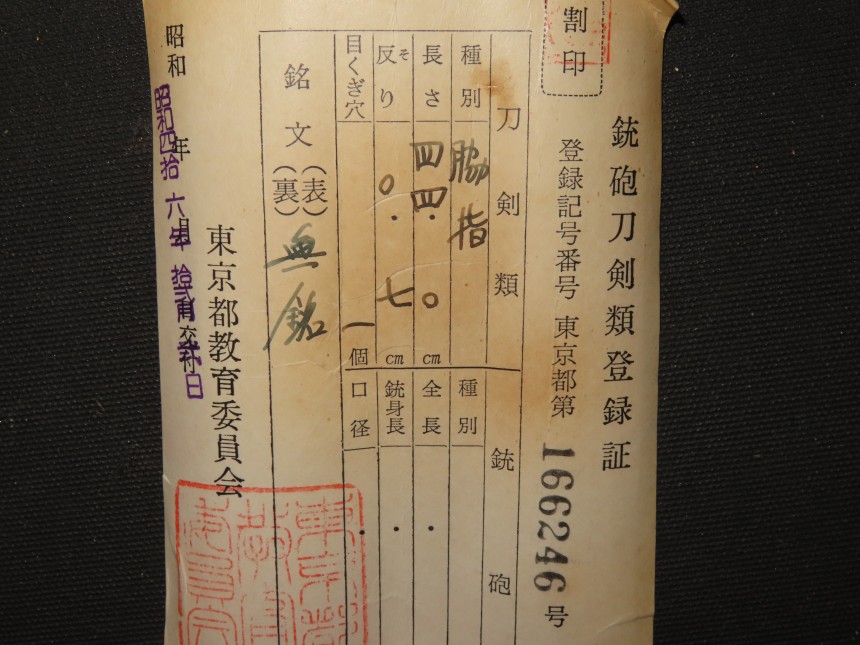 割印
銃砲刀剣類登録証
登録記号番号 東京都第 166246 号
刀剣類
種別 脇指
長さ 四四.〇 cm
反り そ 〇.七 cm
目くぎ穴 一個
銘文 (表) (裏) 無銘
銃砲
種別
全長 .
銃身長 .
口径 .
東京都教育委員会
昭和 年 月 日交付
昭和四拾六年拾弐月 日